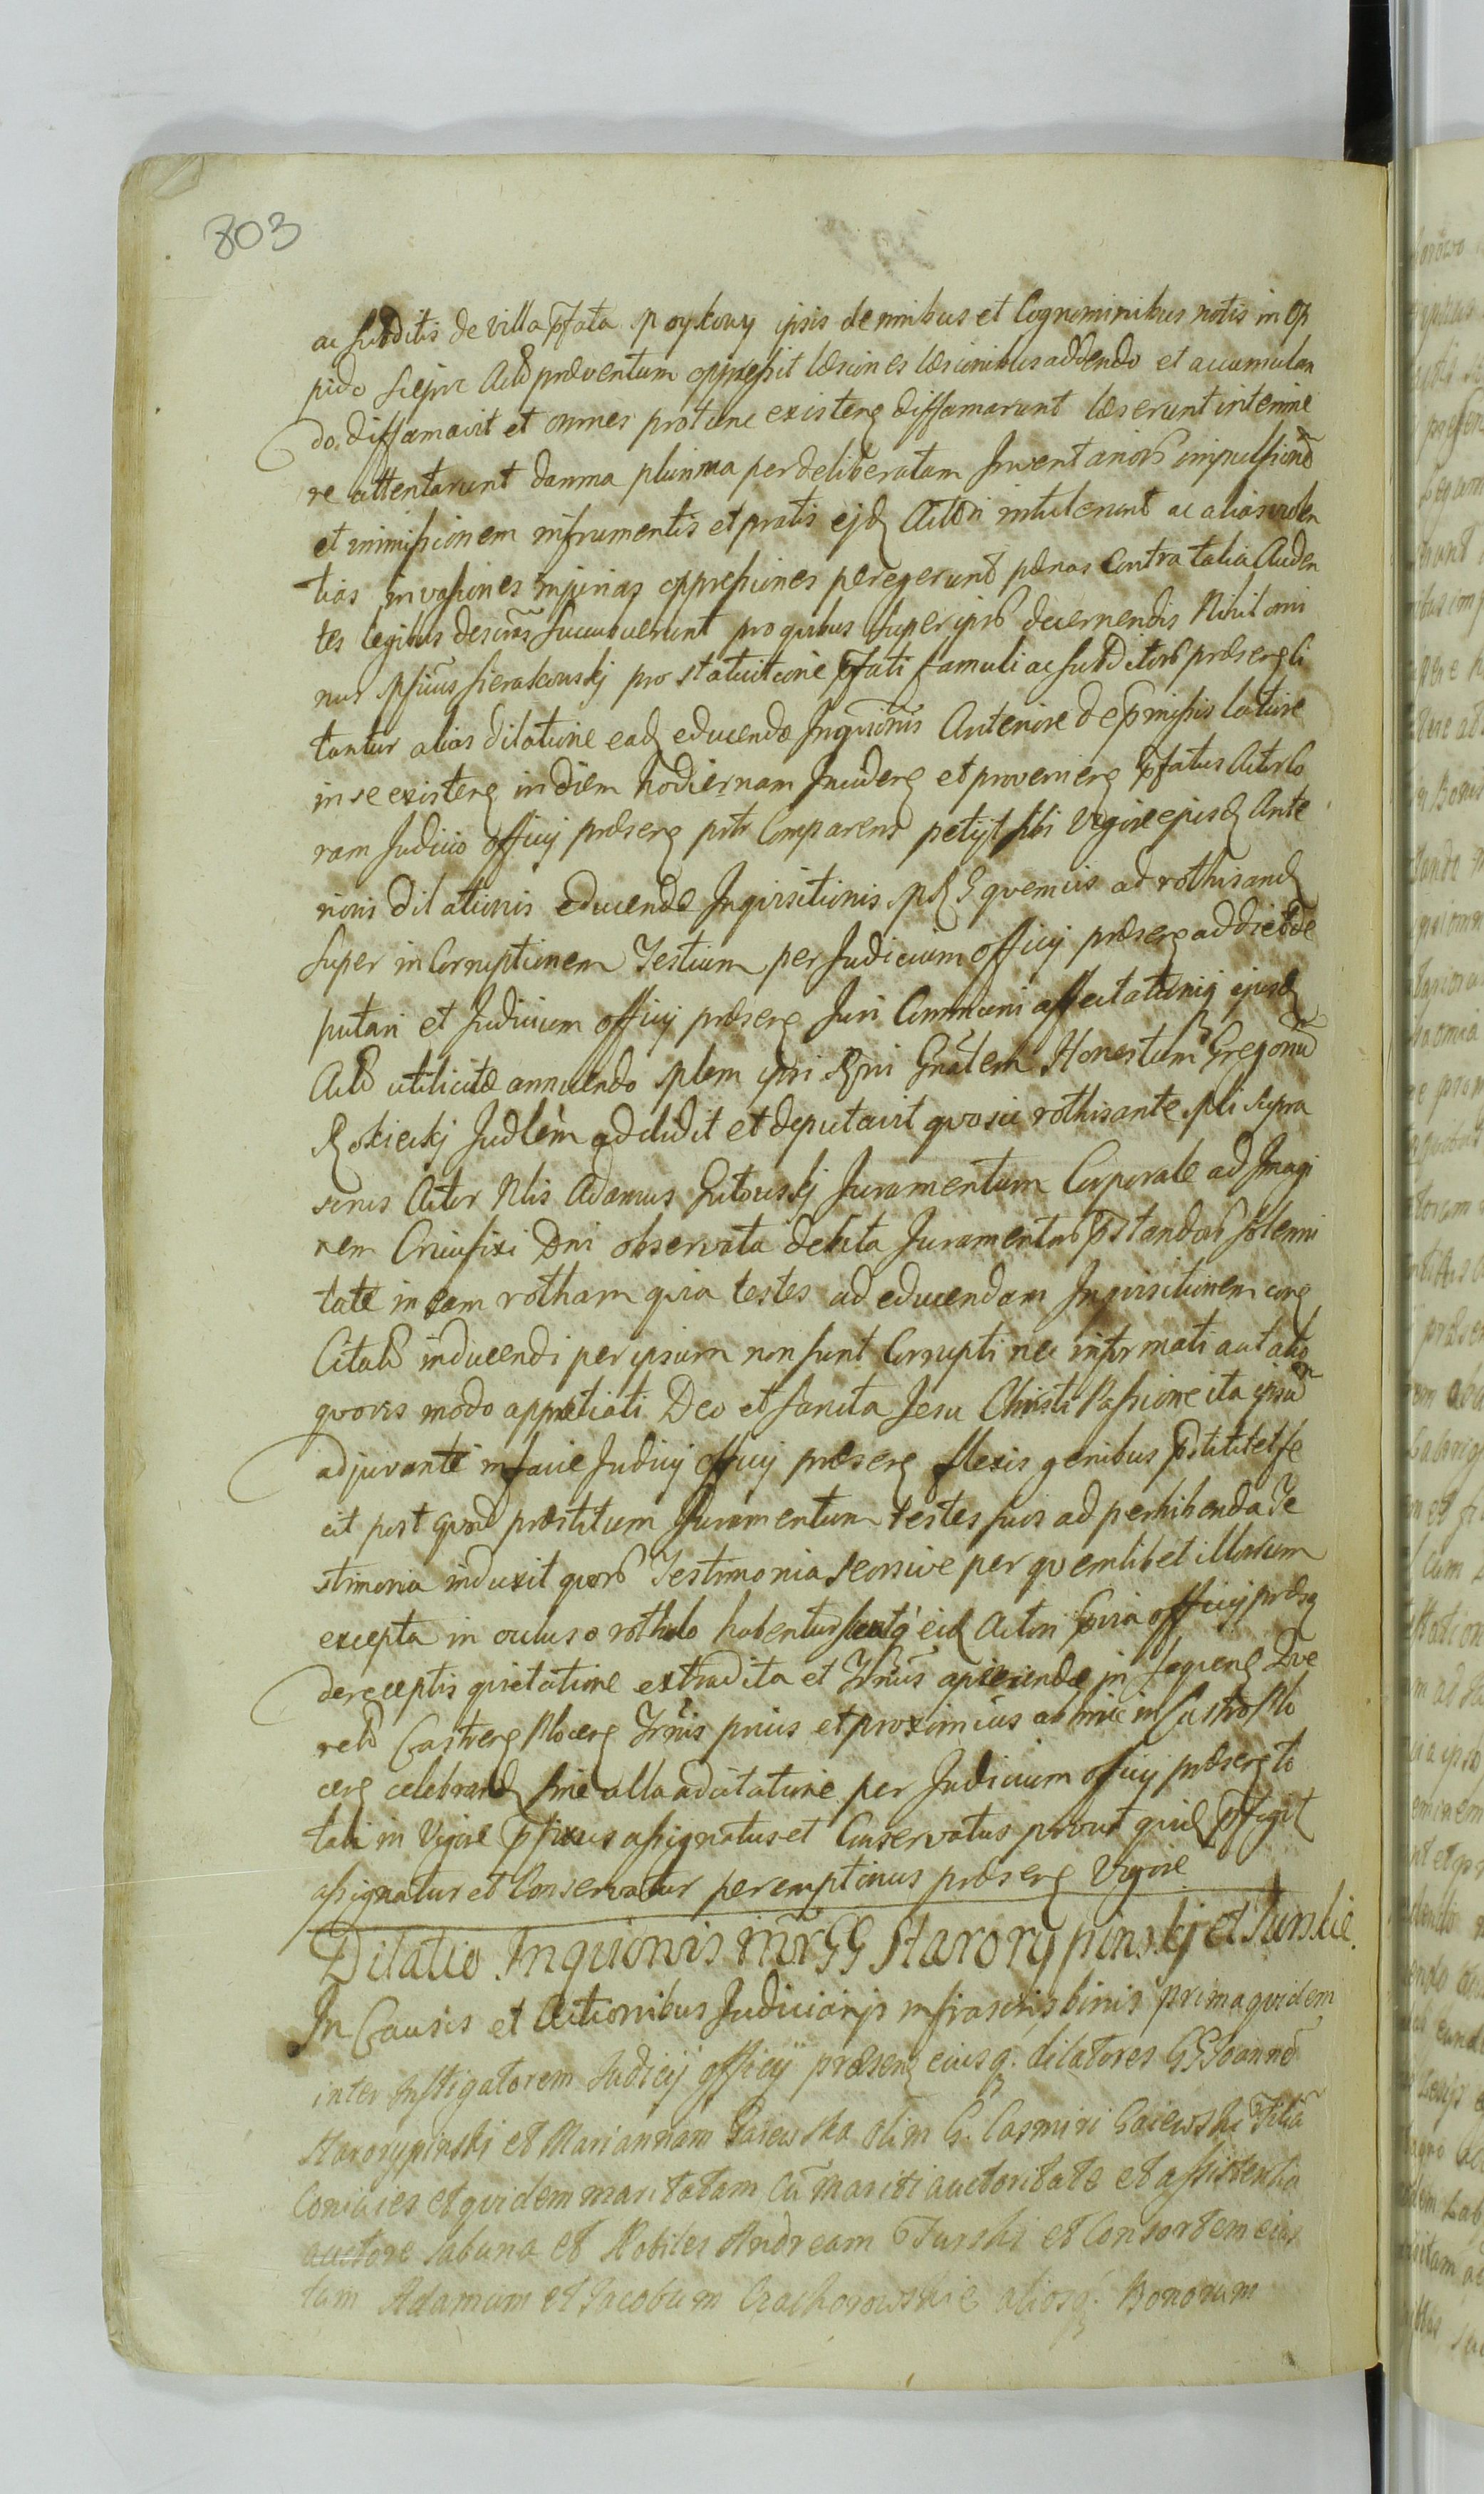 803
ac subditis de villa pfata Spoykowy ipsis de nnibus et Cognominibus notis in Op
pido Sieprc Actõ præventum oppressit læsiones læsionibus addendo et accumulan
do, diffamavit et omnes protunc existeñ diffamarunt læserunt interime
re attentarunt damna plurima per deliberatam Inventariorũ impulsionẽ
et immissionem in frumentis et pratis ejd Actori intulerunt ac alias violen
tias invasiones injurias oppressiones peregerunt pænas Contra talia Auden
tes legibus descrãs succubuerunt pro quibus super ipsis decernendis Nihil omi
nus Sierakowskj pro statuitione pfati famuli ac subditorũ præsen li
tantur alias dilatione ead educendæ Inquõnis Anteriore de præmissis latiore
in se existeñ in diem hodiernam Incideñ et provenieñ pfatus Actor Co
ram Judicio officij præseñ pntr Comparens petijt sibi Vigore ejusd Ante
rioris dilationis educendæ Inquisitionis quempiis ad rothisand
super inCorruptionem Testium per Judicium officij præseñ addi et de
putari et Judicium officij præseñ Juri Communi affectationiq ejusd
Actõ utilitate annuendo Gñalem Honestum Gregoriũ
Rokickj Judlem addidit et deputavit quo sic rothisante supra
scrius Actor Nlis Adamus Gutowskj Juramentum Corporale ad Imagi
nem Crucifixi Dni observata debita Juramentorũ pstandorũ solemni
tate in eam rotham quia testes ad educendam Inquisitionem
Citatũ inducendi per ipsum non sunt Corrupti nec informati aut alio
quovis modo appretiati Deo et sancta Jesu Christi Passione ita ipsũ
adjuvante in facie Judicij officij præseñ flexis genibus pstitit et fe
cit post quod præstitum Juramentum testes suos ad perhibenda Te
stimonia induxit quorũ Testimonia seorsive per quemlibet illorum
excepta in occluso rothulo habentur eid Actori officij præseñ
de receptis quietatione extradita et Trñus aperiendæ in sequeñ Que
relõ Castreñ Ploceñ Trñis prius et proximius ab hinc in Castro Plo
ceñ celebrand sine ulla adcitatione per Judicium officij præseñ to
tali in Vigore pfixus assignatus et Conservatus prout quid pfigit
assignatur et Conservatur peremptorius præseñ Vigore
Dilatio Inquõnis intr GG Starorypinskj et Turskie.
In Causis et Actionibus Judiciarijs infrascris binis prima quidem
inter Instigatorem Judicij officij præseñ eiusq: dilatores GG Joannẽ
Starorypinski et Mariannam Gaiewska olim G. Casmiri Gaiewski Filiã
Coniuges et quidem maritatam cũ mariti auctoritate et assistentia
auctore Sabuna et Nobiles Andream Turski et Consortem eius
tum Adamum et Jacobum Czachorowskie aliosq: Bonorum